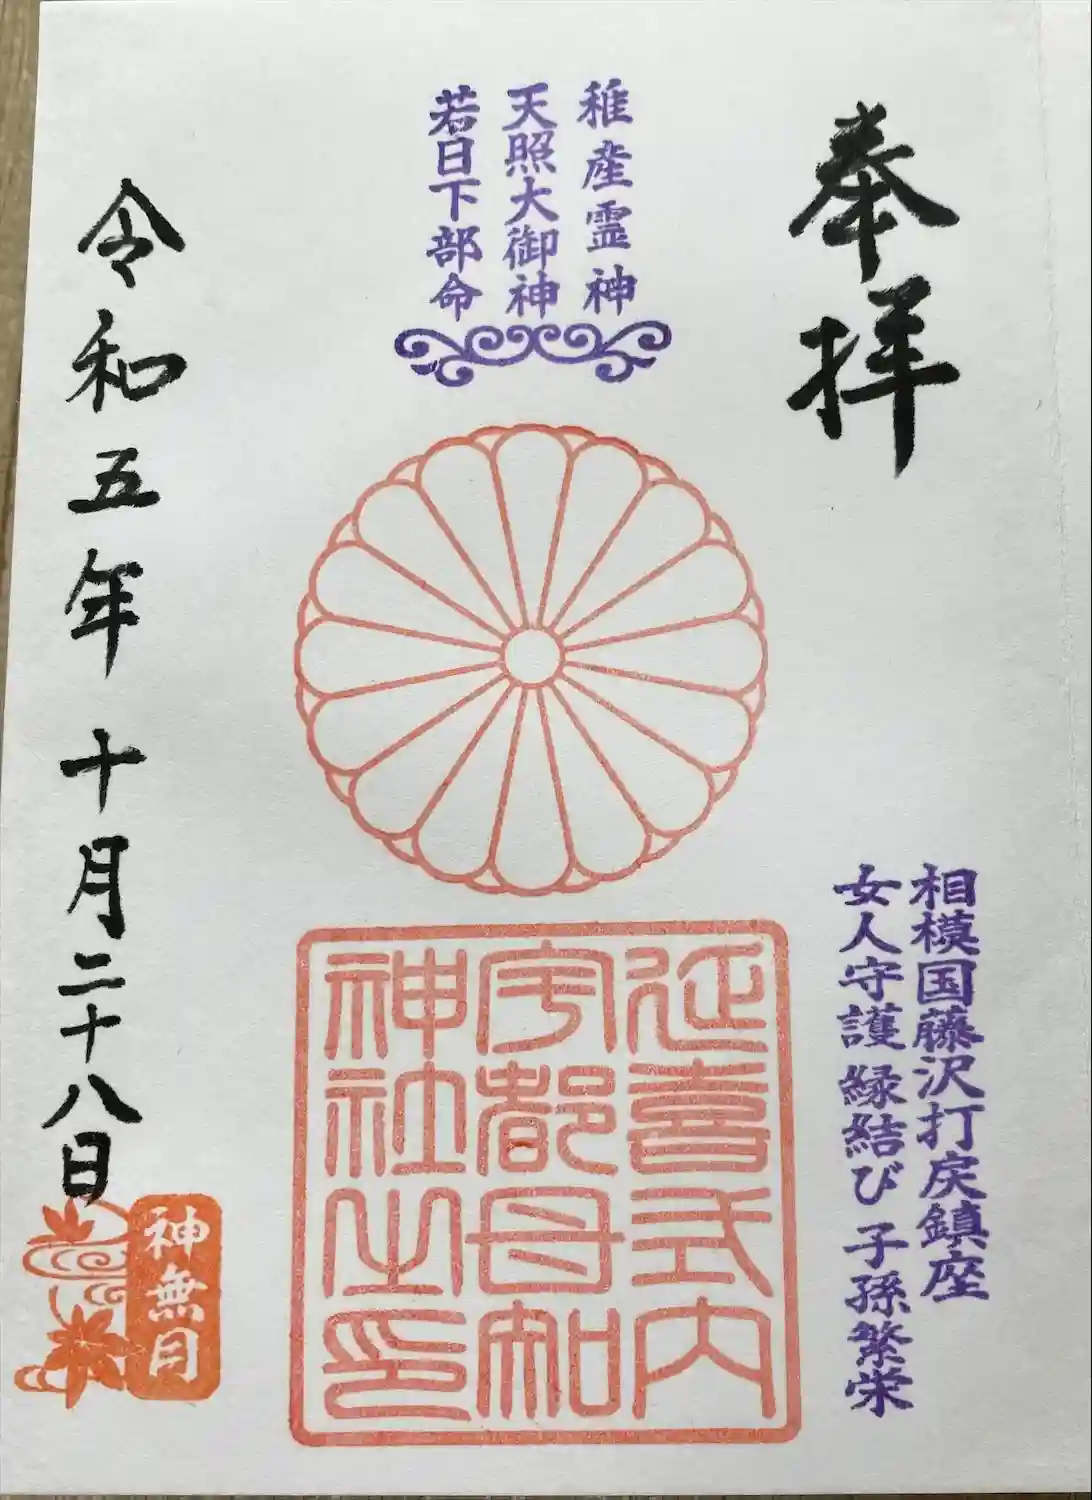 奉拝
相模国藤沢打戻鎮座
女人守護 縁結び 子孫繁栄
稚産霊神
天照大御神
若日下部命
延喜式内
宇都母知
神社之印
令和五年十月二十八日
神無月